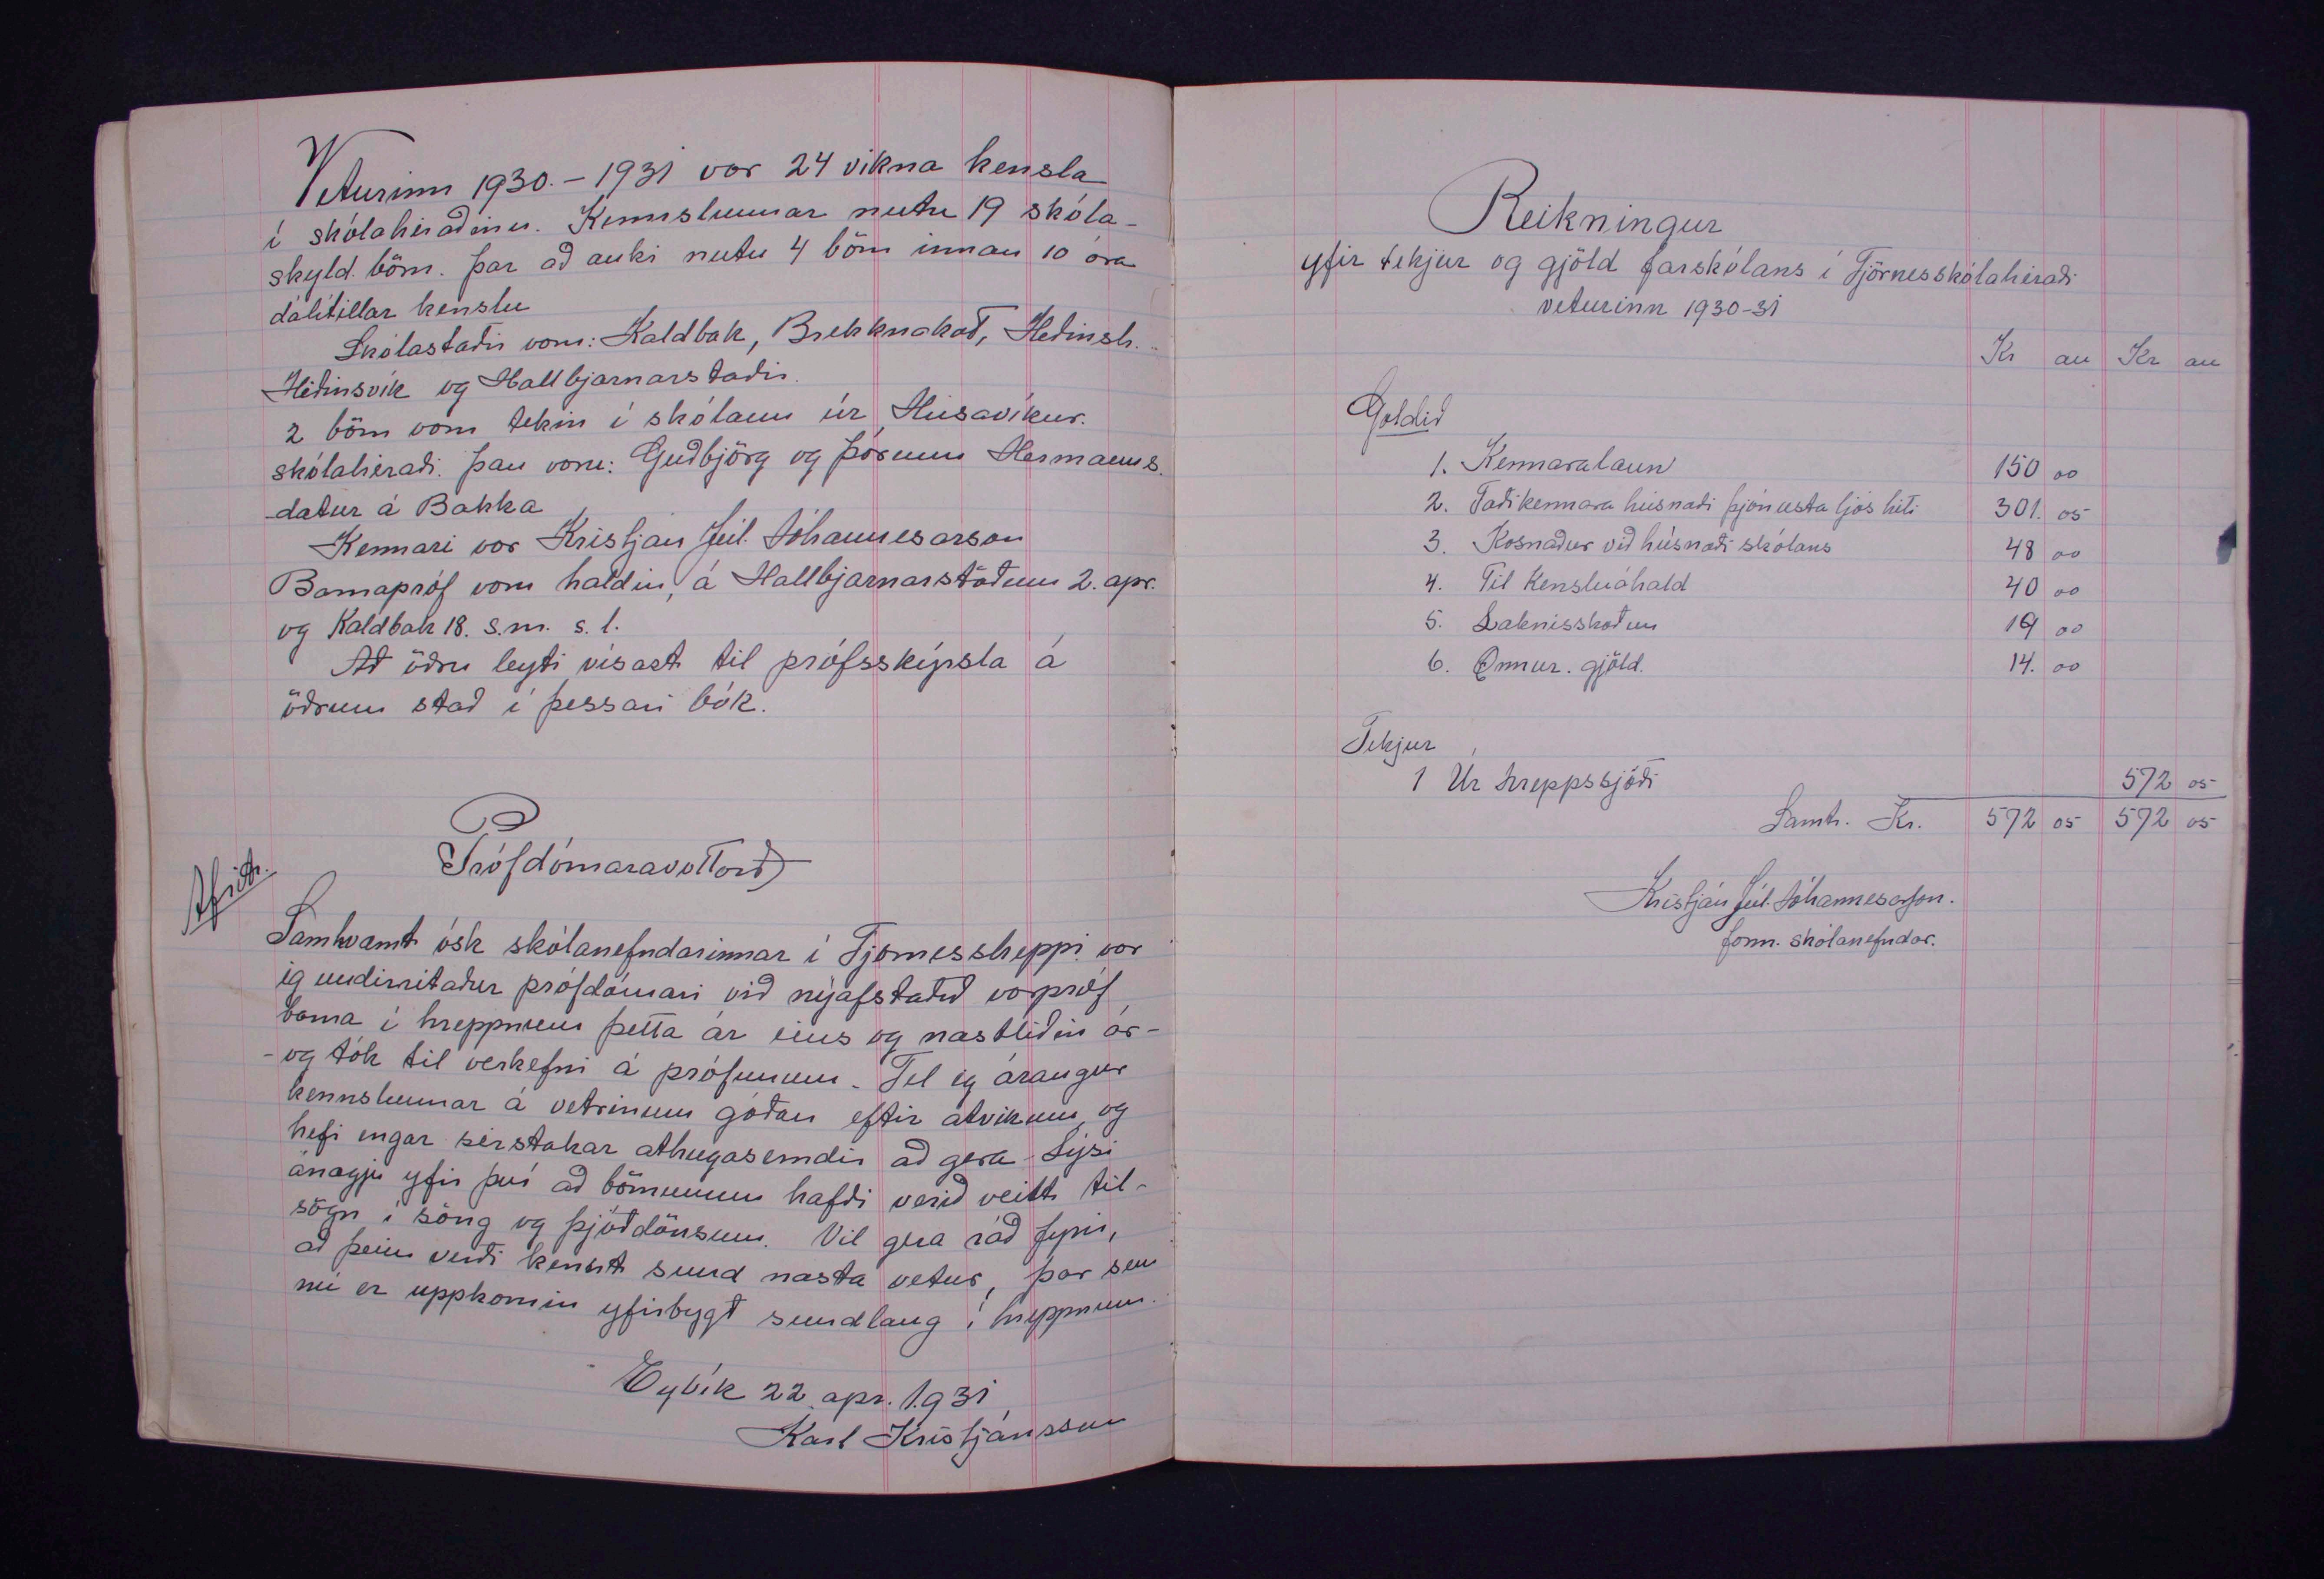 Veturinn 1930.-1931 var 24 vikna kensla
í skólahéraðinu. Kennslunnar nutu 19 skóla-
skyld. börn. Þar að auki nutu 4 börn innan 10 ára
dálítillar kenslu
Skólastaðir voru: Kaldbak, Brekknakot, Héðinsh.
Héðinsvík og Hallbjarnarstaðir.
2 börn voru tekin í skólann úr Húsavíkur.
skólahéraði. Þau voru: Guðbjörg og Þórunn Hermanns.
-dætur á Bakka
Kennari var Kristján Júl. Jóhannesarson
Barnapróf voru haldin, á Hallbjarnarstöðum 2. apr.
og Kaldbak 18. s.m. s. l.
Að öðru leyti vísast til prófsskýrsla á
öðrum stað í þessari bók.
Prófdómaravottorð
Afrit.
Samkvæmt ósk skólanefndarinnar í Tjörneshreppi var
ég undirritaður prófdómari við nýafstaðið vorpróf
barna í hreppnum þetta ár eins og næstliðin ár-
-og tók til verkefni á prófunum. Tel ég árangur
kennslunnar á vetrinum góðan eftir atvikum, og
hefi engar sérstakar athugasemdir að gera. Lýsi
ánægju yfir því að börnunum hafði verið veitt til-
sögn í söng og þjóðdönsum. Vil gera ráð fyrir,
að þeim verði kennt sund næsta vetur, þar sem
nú er uppkomin yfirbygt sundlaug í hreppnum.
Eyvík 22. apr. 1931
Karl Kristjánsson
Reikningur
yfir tekjur og gjöld farskólans í Tjörnesskólahéraði
veturinn 1930-31
Kr au Kr au
Goldið
1. Kennaralaun 150 00
2. Fæði kennara húsnæði þjónusta ljós hiti 301. 05
3. Kosnaður við húsnæði skólans 48 00
4. Til Kensluáhald 40 00
5. Læknisskoðun 19 00
6. Önnur. gjöld. 14. 00
Tekjur
1 Úr hreppssjóði 572 05
Samt. Kr. 572 05 572 05
Kristján Júl. Jóhannesarson.
form. skólanefndar.